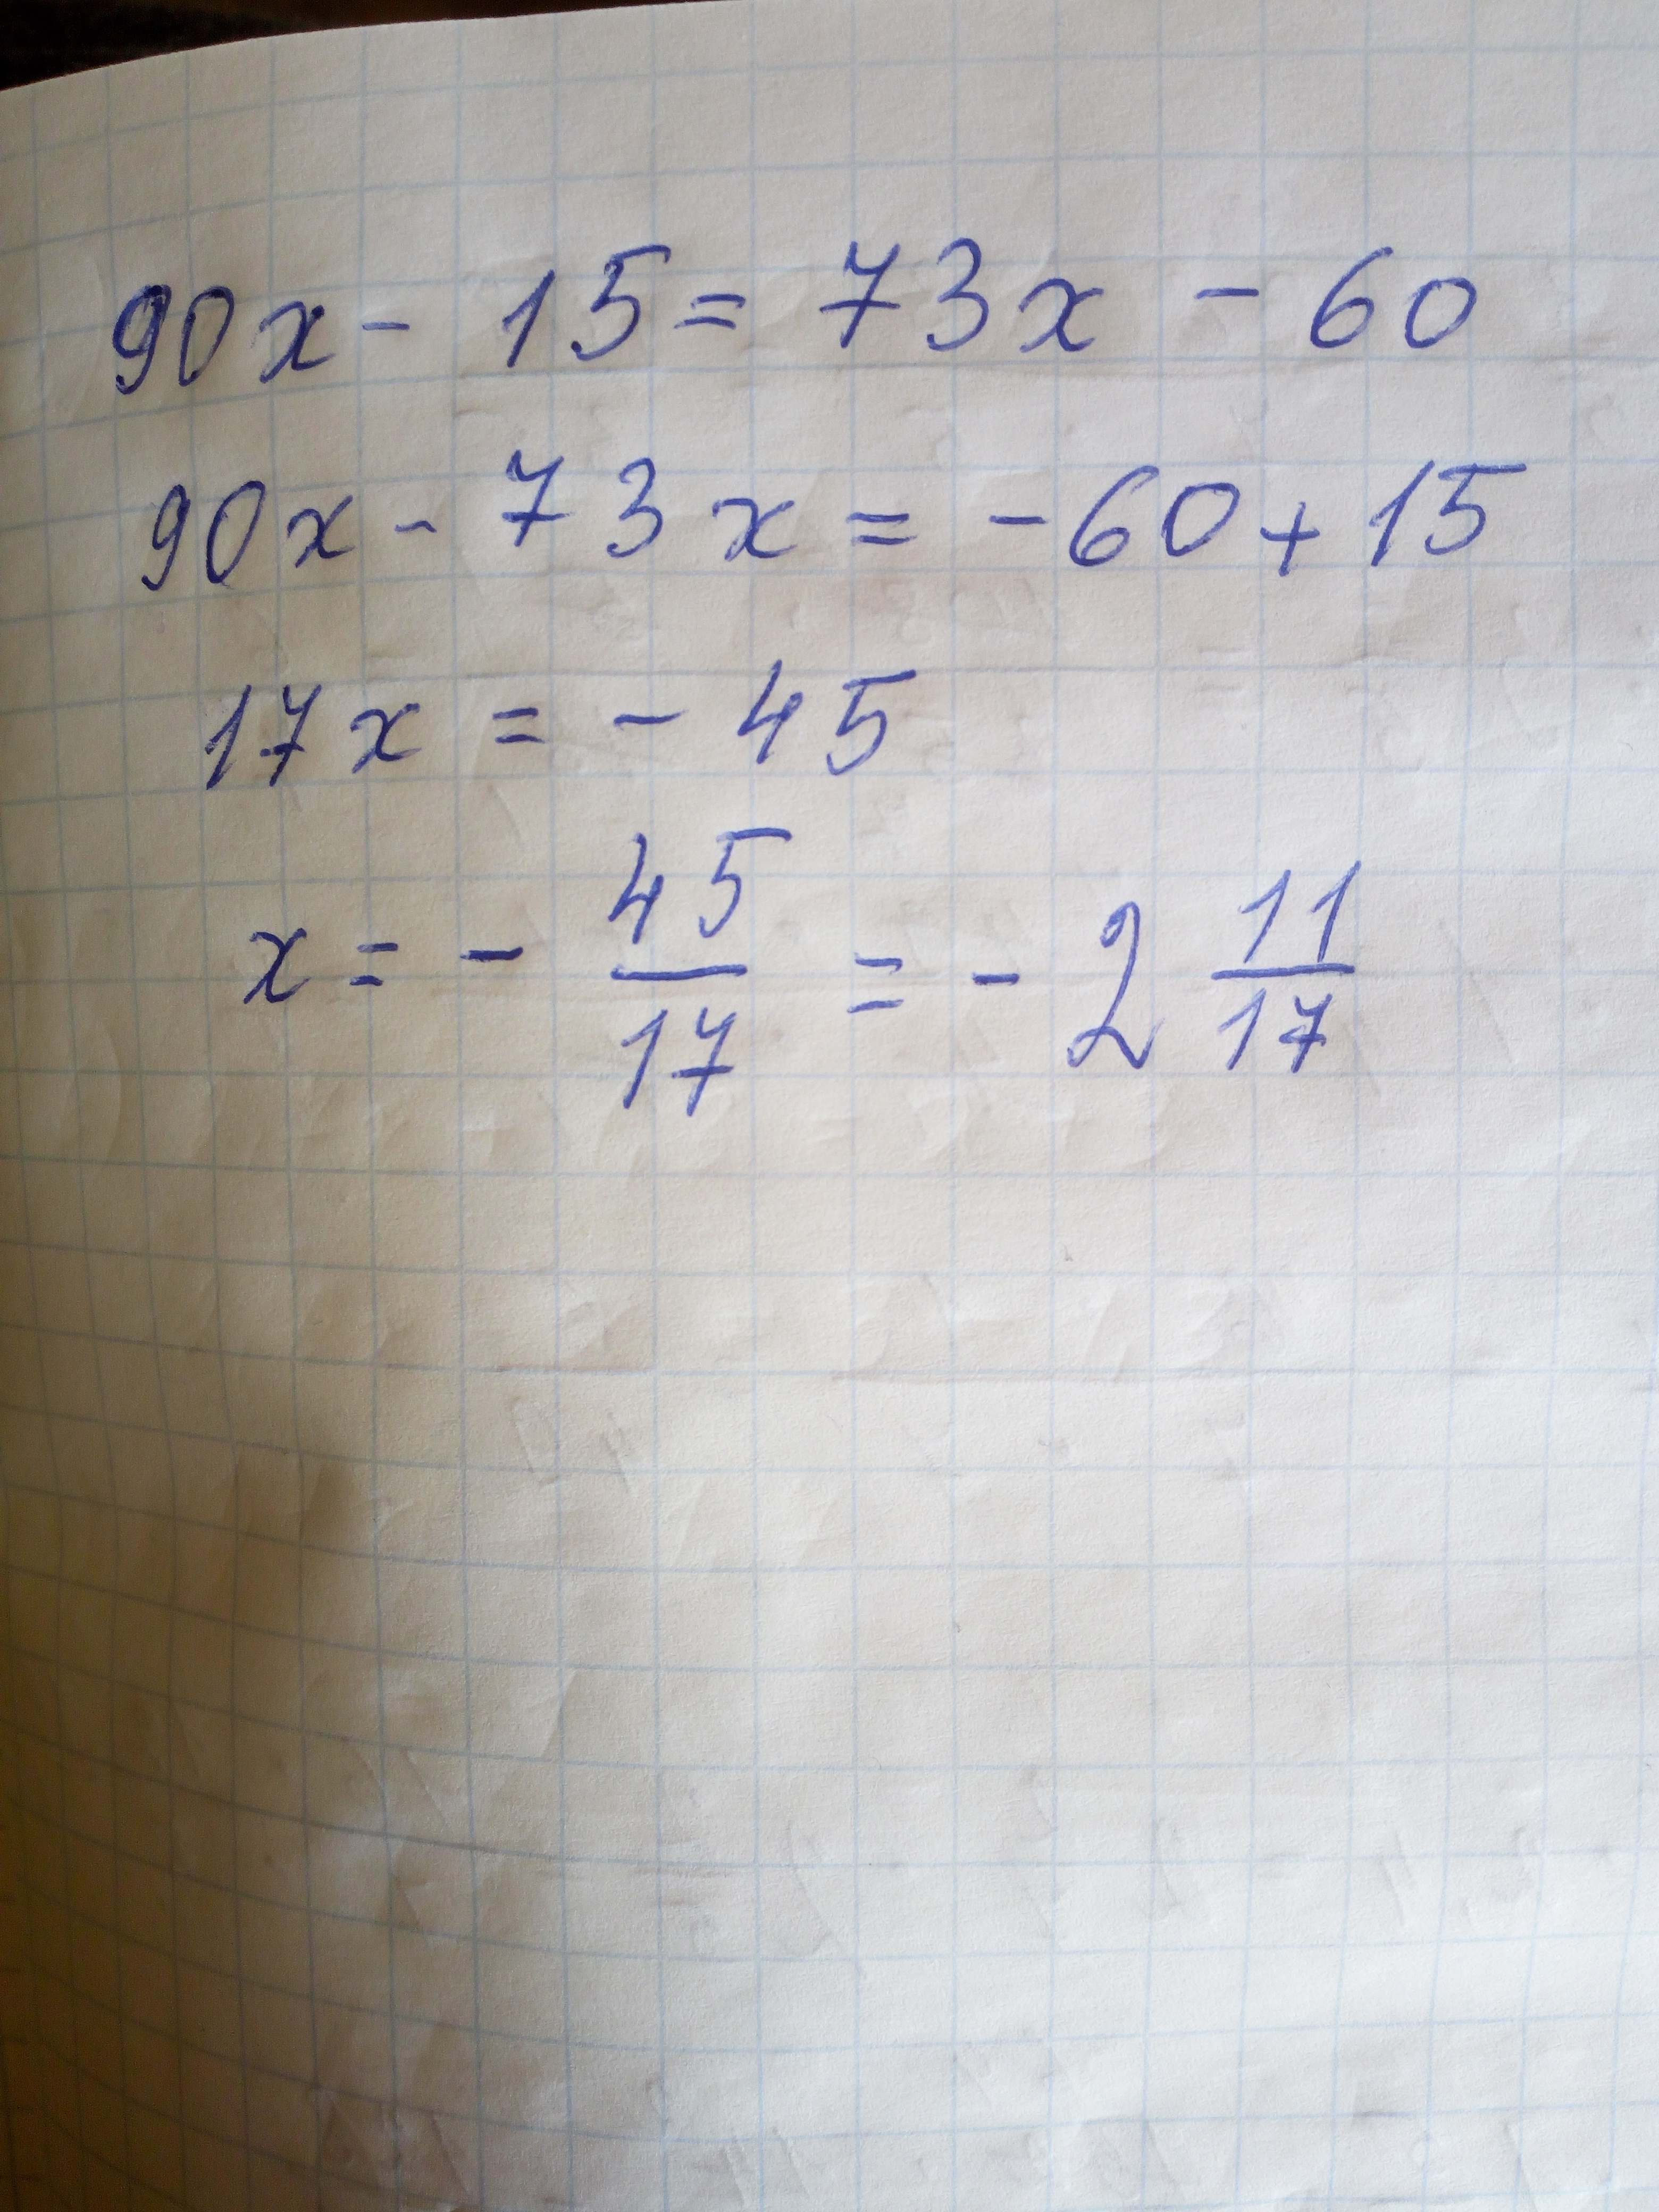 90x - 15 = 73x - 60
90x - 73x = -60 + 15
17x = - 45
x = - 45/17 = - 2 11/17